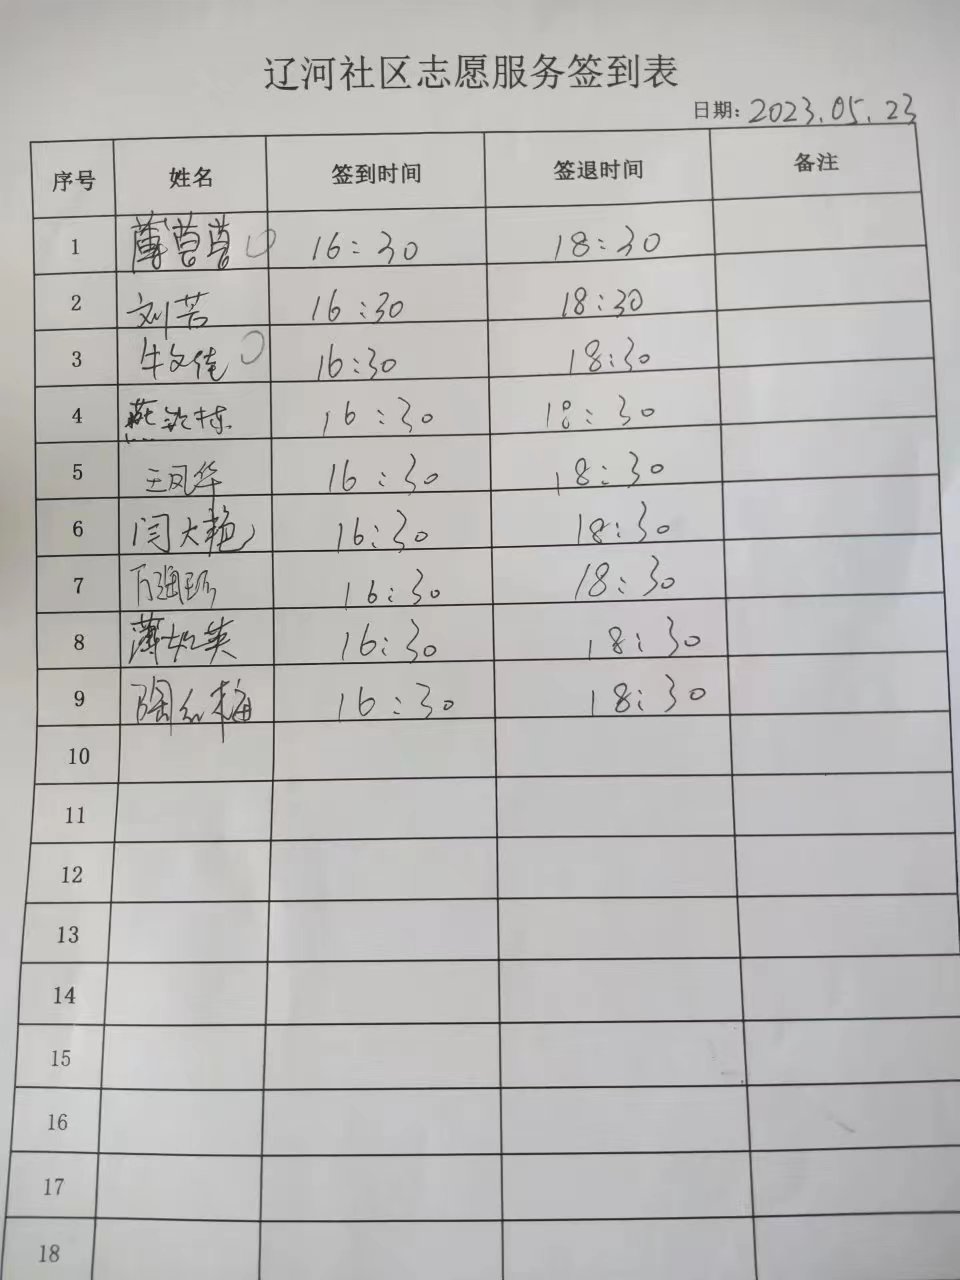 辽河社区志愿服务签到表
日期: 2023.05.23
序号 姓名 签到时间 签退时间 备注
1 16:30 18:30
2 刘芳 16:30 18:30
3 牛文倩 16:30 18:30
4 16:30 18:30
5 王凤华 16:30 18:30
6 闫大艳 16:30 18:30
7 16:30 18:30
8 薄如英 16:30 18:30
9 陶红梅 16:30 18:30
10
11
12
13
14
15
16
17
18